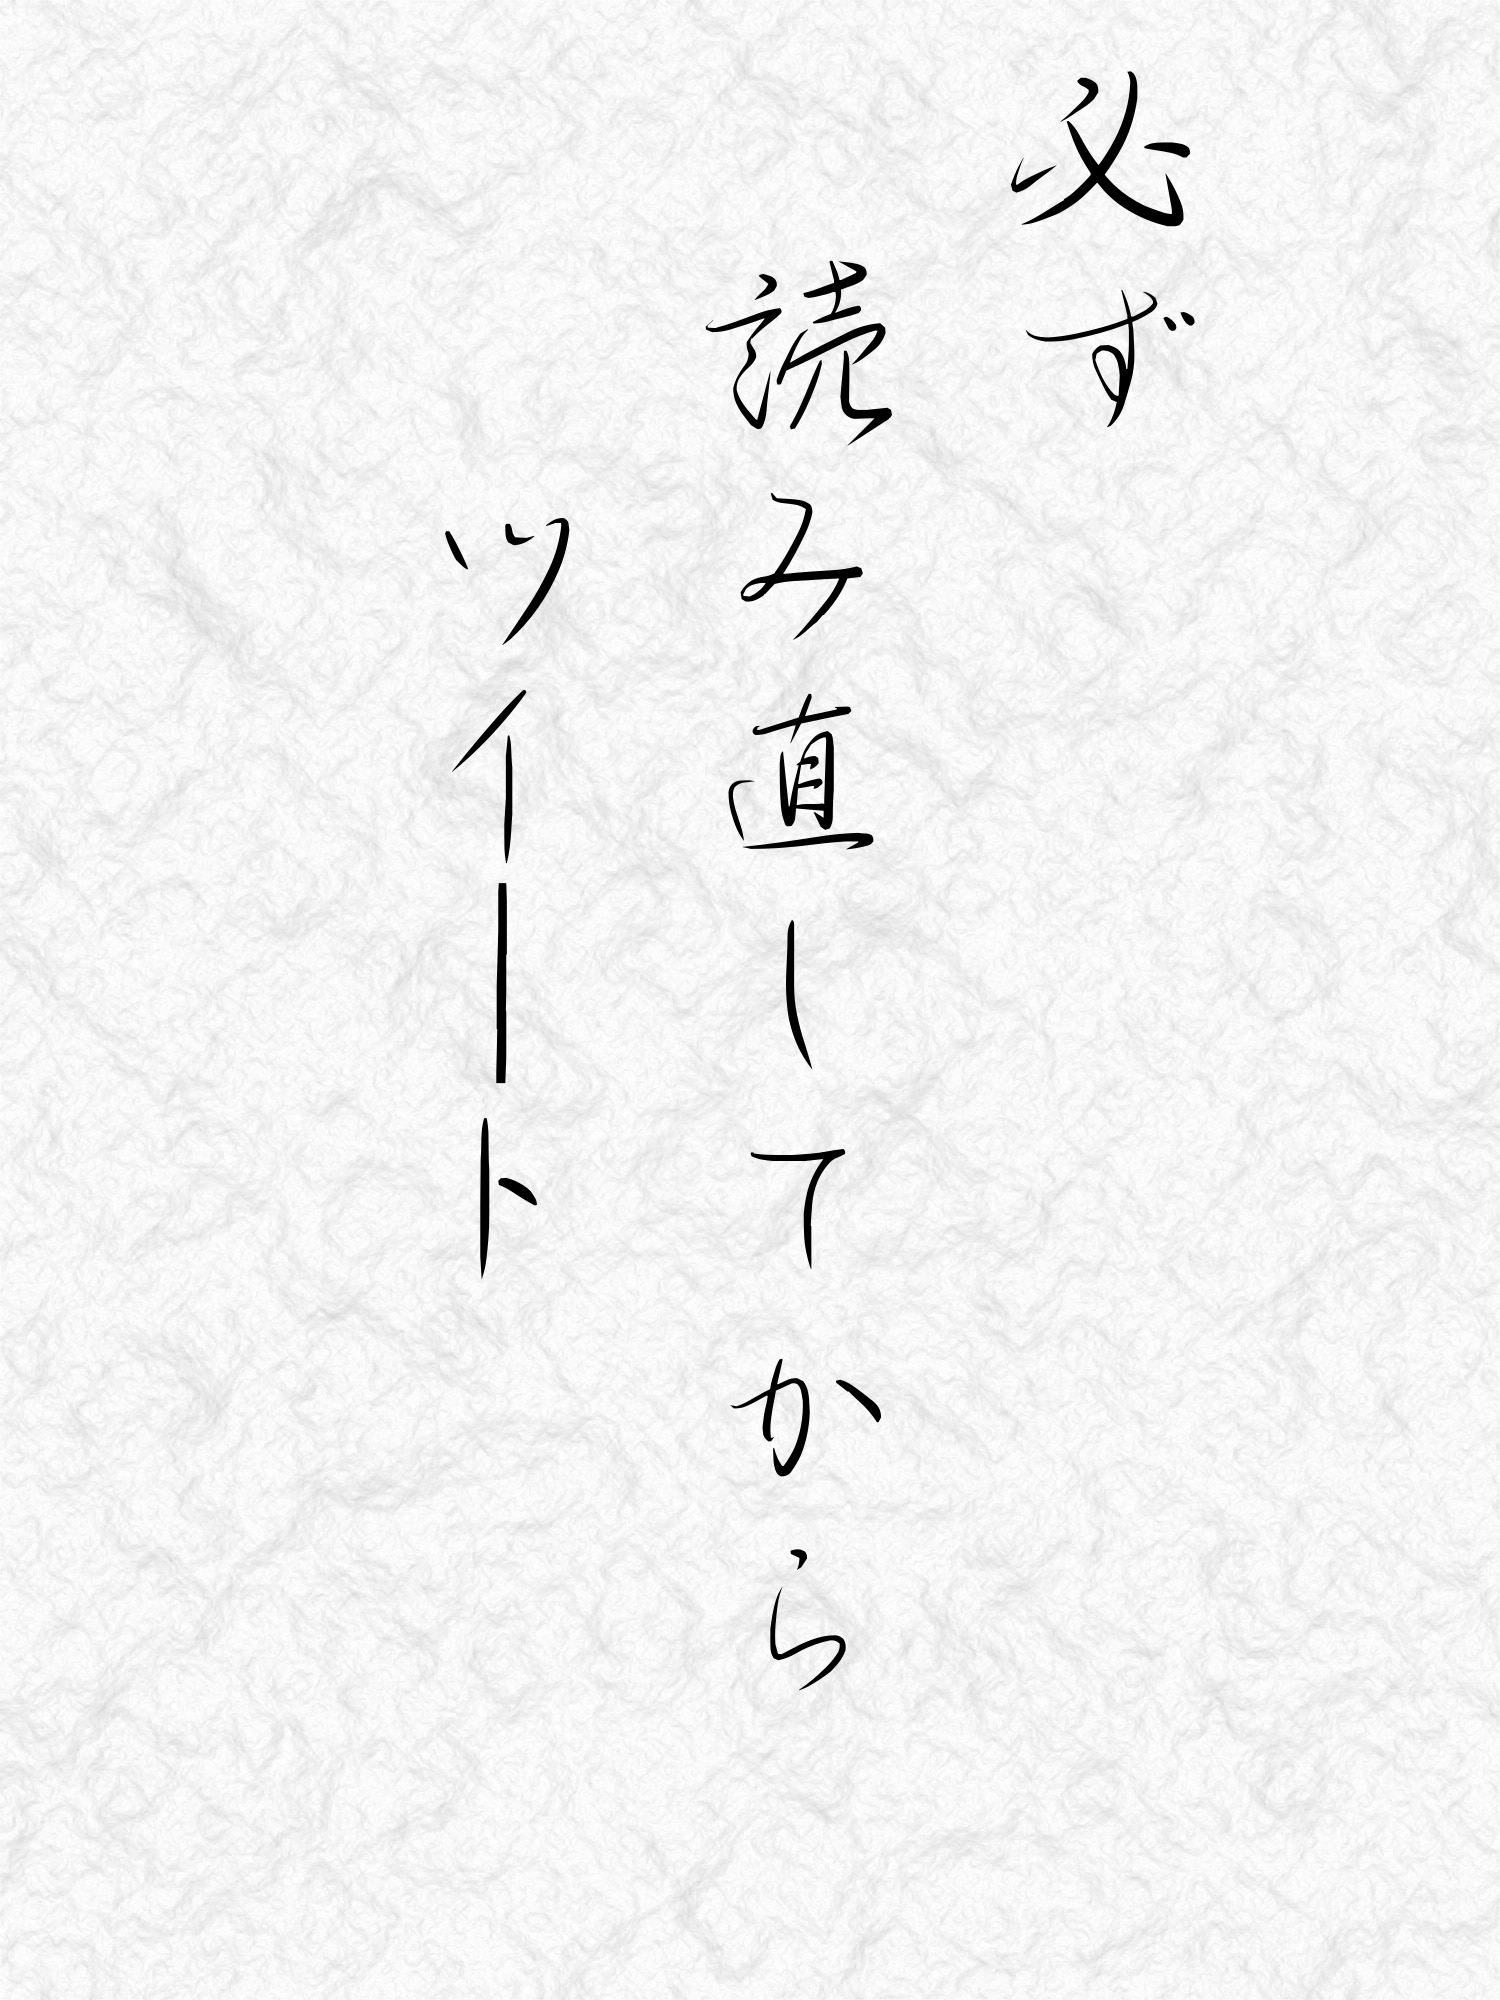 必ず
読み直してから
ツイート